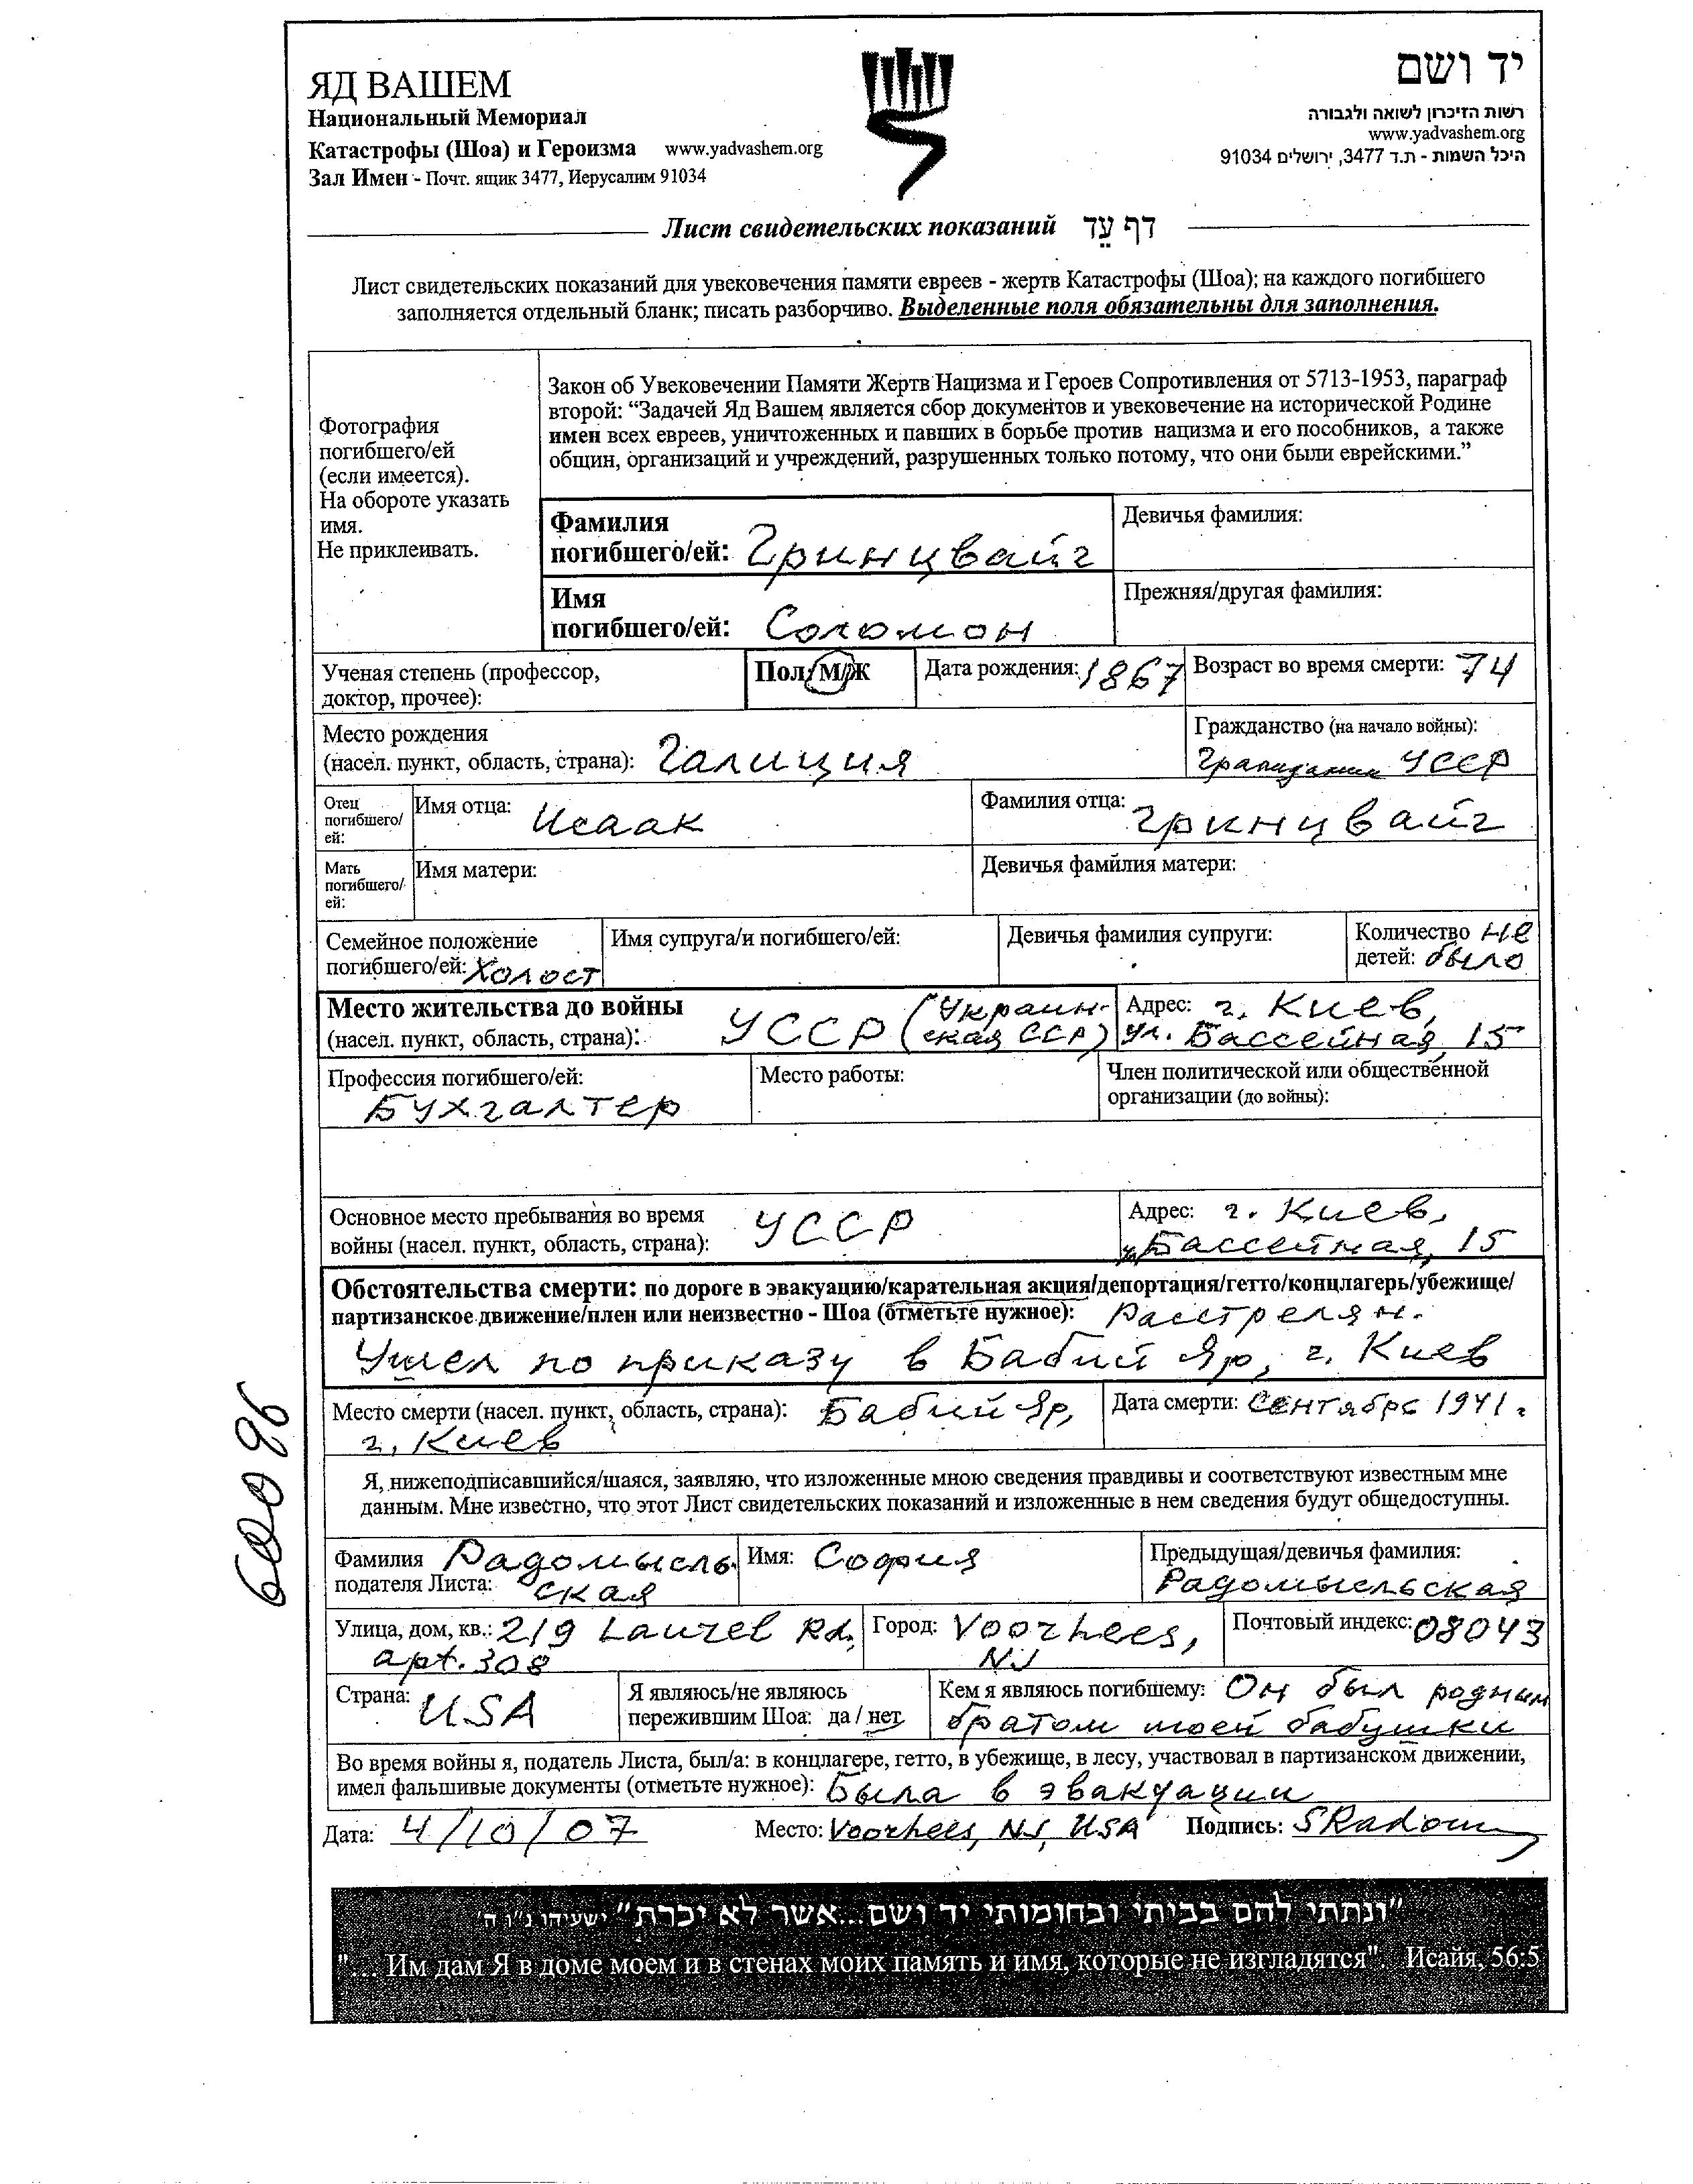 ЯД ВАШЕМ
Национальный Мемориал
Катастрофы (Шоа) и Героизма www.yadvashem.org
Зал Имен - Почт. ящик 3477, Иерусалим 91034
יד ושם
רשות הזיכרון לשואה ולגבורה
www.yadvashem.org
היכל השמות - ת.ד 3477, ירושלים 91034
Лист свидетельских показаний דף עֵד
Лист свидетельских показаний для увековечения памяти евреев - жертв Катастрофы (Шоа); на каждого погибшего
заполняется отдельный бланк; писать разборчиво. Выделенные поля обязательны для заполнения.
Фотография
погибшего/ей
(если имеется).
На обороте указать
имя.
Не приклеивать.
Закон об Увековечении Памяти Жертв Нацизма и Героев Сопротивления от 5713-1953, параграф
второй: “Задачей Яд Вашем является сбор документов и увековечение на исторической Родине
имен всех евреев, уничтоженных и павших в борьбе против нацизма и его пособников, а также
общин, организаций и учреждений, разрушенных только потому, что они были еврейскими.”
Фамилия
погибшего/ей: Гринцвайг
Девичья фамилия:
Имя
погибшего/ей: Соломон
Прежняя/другая фамилия:
Ученая степень (профессор,
доктор, прочее):
Пол: М/Ж
Дата рождения: 1867
Возраст во время смерти: 74
Место рождения
(насел. пункт, область, страна): Галиция
Гражданство (на начало войны):
Гражданин УССР
Отец
погибшего/
ей:
Имя отца: Исаак
Фамилия отца: Гринцвайг
Мать
погибшего/
ей:
Имя матери:
Девичья фамилия матери:
Семейное положение
погибшего/ей: Холост
Имя супруга/и погибшего/ей:
Девичья фамилия супруги:
Количество не
детей: было
Место жительства до войны
(насел. пункт, область, страна): УССР (Украин-
ская ССР)
Адрес: г. Киев,
ул. Бассейная, 15
Профессия погибшего/ей:
Бухгалтер
Место работы:
Член политической или общественной
организации (до войны):
Основное место пребывания во время
войны (насел. пункт, область, страна): УССР
Адрес: г. Киев,
ул. Бассейная, 15
Обстоятельства смерти: по дороге в эвакуацию/карательная акция/депортация/гетто/концлагерь/убежище/
партизанское движение/плен или неизвестно - Шоа (отметьте нужное): Расстрелян.
Ушел по приказу в Бабий Яр, г. Киев
Место смерти (насел. пункт, область, страна): Бабий Яр,
г. Киев
Дата смерти: Сентябрь 1941 г
Я, нижеподписавшийся/шаяся, заявляю, что изложенные мною сведения правдивы и соответствуют известным мне
данным. Мне известно, что этот Лист свидетельских показаний и изложенные в нем сведения будут общедоступны.
Фамилия Радомысль-
подателя Листа: ская
Имя: София
Предыдущая/девичья фамилия:
Радомысльская
Улица, дом, кв.: 219 Laurel Rd,
apt. 308
Город: Voorhees,
NJ
Почтовый индекс: 08043
Страна: USA
Я являюсь/не являюсь
пережившим Шоа: да / нет
Кем я являюсь погибшему: Он был родным
братом моей бабушки
Во время войны я, податель Листа, был/а: в концлагере, гетто, в убежище, в лесу, участвовал в партизанском движении,
имел фальшивые документы (отметьте нужное): Была в эвакуации
Дата: 4/10/07 Место: Voorhees, NJ, USA Подпись: SRadom
"ונתתי להם בביתי ובחומותי יד ושם...אשר לא יכרת" ישעיהו נ"ו ה'
"... Им дам Я в доме моем и в стенах моих память и имя, которые не изгладятся". Исайя, 56:5